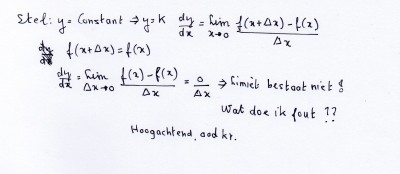 Stel: y = Constant ⇒ y = K dy/dx = Lim x→0 f(x+Δx) - f(x) / Δx
f(x+Δx) = f(x)
dy/dx = Lim Δx→0 f(x) - f(x) / Δx = 0/Δx ⇒ Limiet bestaat niet!
Wat doe ik fout ??
Hoogachtend, aad kr.